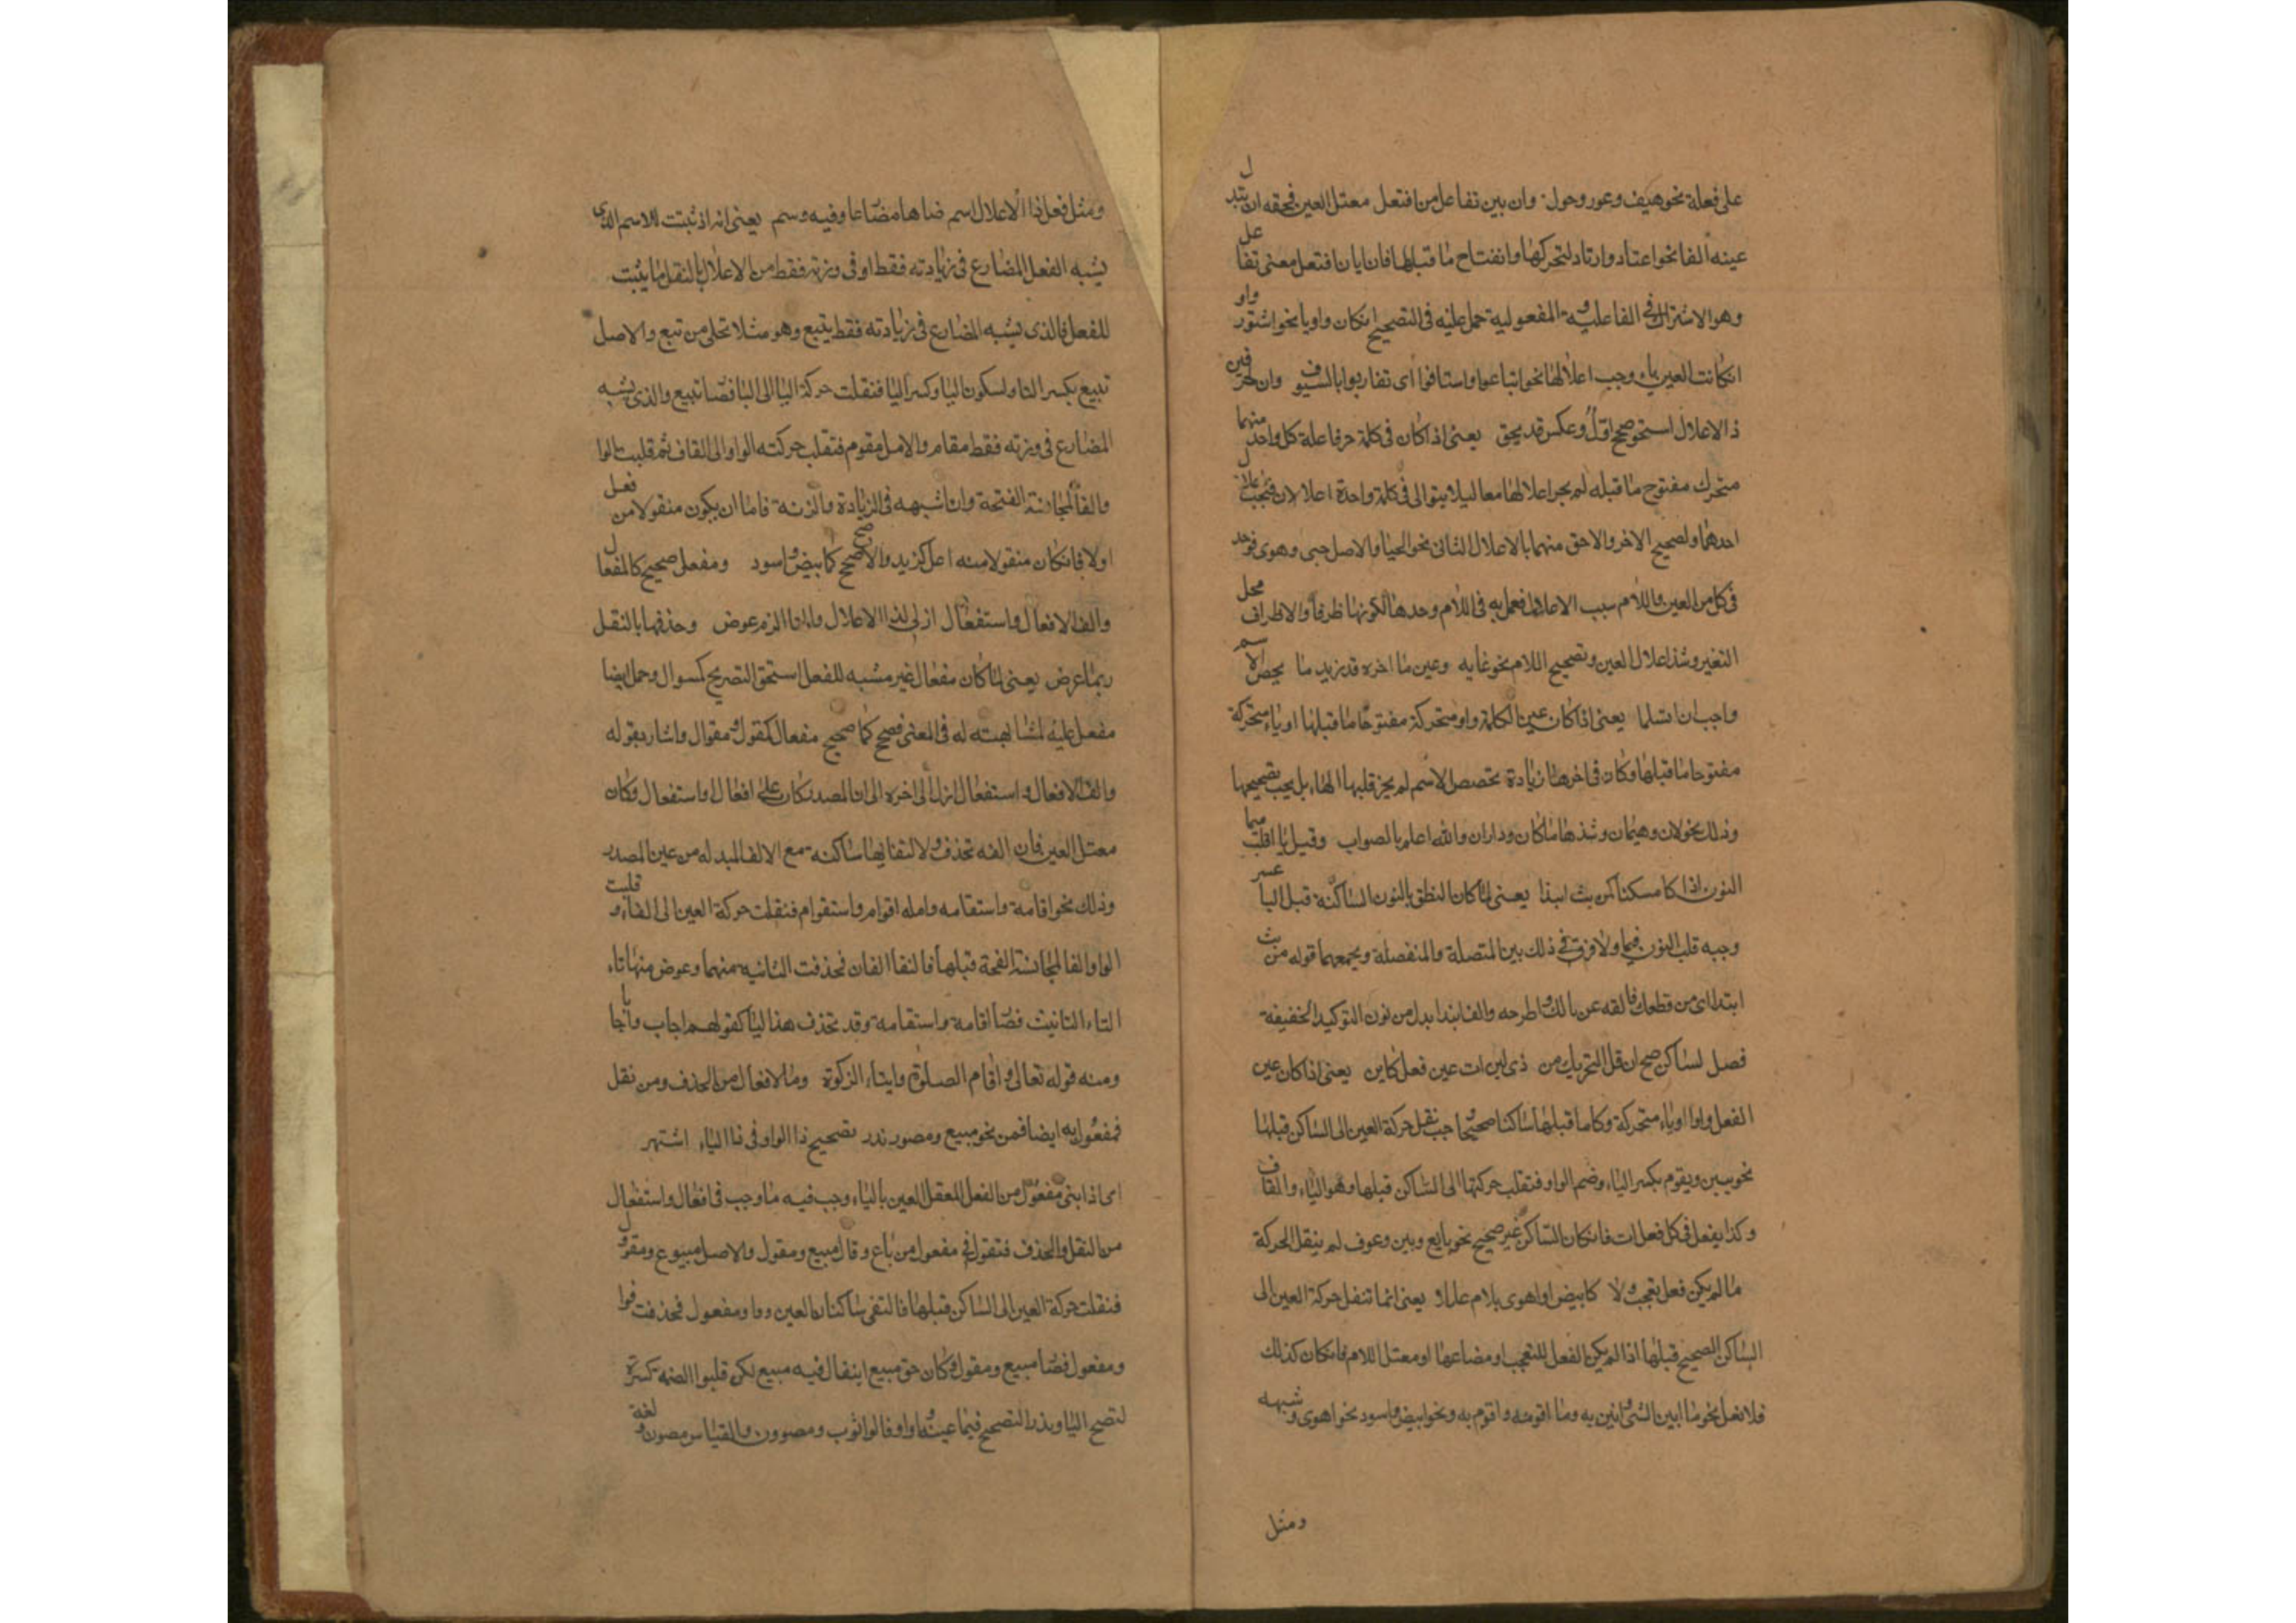 على فعلة نحو هيف وعور وحول وان يبن تفاعل من افتعل معتل العين فحقه ان تبدل
عينه الفا نحو اعتاد وارتاد لتحركها وانفتاح ما قبلها فان ابان افتعل معنى تفاعل
وهو الاشتراك فى الفاعلية والمفعولية حمل عليه فى التصحيح انكان واويا نحو اشتوروا
انكانت العين ياء وجب اعلالها نحو ابتاعوا واستافوا اى تضاربوا بالسيوف وان حرفين
ذ الاعلال استحق صحح اول وعكس قد يحق يعنى اذا كان فى كلمة حرفا علة كل واحد منهما
متحرك مفتوح ما قبله لم يجز اعلالهما معا ليلا يتوالى فى كلمة واحدة اعلالان فيجب اعلال
احدهما وتصحيح الاخر والاحق منهما بالاعلال الثانى نحو الحيا والاصل حيى وهوى فوجد
فى كل من العين واللام سبب الاعلال فعمل به فى اللام وحدها لكونها طرفا والاطراف محل
التغير وشذ اعلال العين وتصحيح اللام نحو غايه وعين ما اخره قد زيد ما يخص الاسم
واجب ان تسلما يعنى اذا كان عين الكلمة واو متحركة مفتوحا ما قبلها او ياء متحركة
مفتوحا ما قبلها وكان فى اخرها زيادة تخصص الاسم لم يجز قلبها الفا بل يجب تصحيحها
وذلك نحو جولان وهيمان وشذ هامان وداران والله اعلم بالصواب وقبل يا اقلب ميما
النون اذا كا مسكنا كمن بث انبذا يعنى لما كان النطق بالنون الساكنة قبل البا عسر
وجبه قلب النون ميما ولا فرق فى ذلك بين المتصلة والمنفصلة ويجمعهما قوله من بث
انبذا اى من قطعك فالقه عن بالك واطرحه والف انبذا بدل من نون التوكيد الخفيفة
فصل لساكن صح انقل التحريك من ذى لين ات عين فعل كابن يعنى اذا كان عين
الفعل واوا او ياء متحركة وكا ما قبلها ساكنا صحيحا وجب نقل حركة العين الى الساكن قبلها
نحو يبين ويقوم بكسر الياء وضم الواو فنقلب حركتها الى الساكن قبلها وهو الياء والقاف
وكذا يفعل فى كل فعل ات فانكان الساكن غير صحيح نحو بايع وبين وعوف لم ينقل الحركة
ما لم يكن فعل تعجب ولا كابيض او اهوى بلام عللا يعنى انما تنقل حركة العين الى
الساكن الصحيح قبلها اذا لم يكن الفعل للتعجب او مضاعفا او معتل اللام فانكان كذلك
فلا نقل نحو ما ابين الشى وابين به وما اقومه واقوم به ونحو ابيض واسود نحو اهوى وشبهه
ومثل
ومثل فعل ذا الاعلال اسم ضاها مضاعا وفيه وسم يعنى انه اذ ثبت للاسم الذى
يشبه الفعل المضارع فى زيادته فقط او فى وزنه فقط من الاعلال بالنقل ما يثبت
للفعل فالذى يشبه المضارع فى زيادته فقط تبيع وهو مثلا تحلى من تبع والاصل
تبيع بكسر التا وسكون البا وكسر اليا فنقلت حركة اليا الى البا فصا تبيع والذى يشبه
المضارع فى وزنه فقط مقام والاصل مقوم فنقلب حركته الواو الى القاف ثم قلبت الوا
والفا لمجانسة الفتحة وان اشبهه فى الزيادة والزنة فاما ان يكون منقولا من فعل
اولا فانكان منقولا منه اعل كزيد والا صحح كابيض واسود ومفعل صحيح كالمفعال
والف الافعال واستفعال ازل لذا الاعلال والتا الزم عوض وحذفها بالنقل
ربما عرض يعنى لما كان مفعال غير مشبه للفعل استحق التصريح كسوال وحمل ايضا
مفعل عليه لمشابهته له فى المعنى فصحح كما صحيح مفعال كمقول ومقوال واشار بقوله
والف الافعال واستفعال ازل الى اخره الى ان المصدر كان على افعال او استفعال وكان
معتل العين فان الفه تحذف ولالتقايها ساكنه مع الالف المبدله من عين المصدر
وذلك نحو اقامة واستقامه واصله اقوام واستقوام فنقلت حركة العين الى الفاء وقلبت
الواو الفا لمجانسة الفتحة قبلها فالتقا الفان فحذفت الثانيه منهما وعوض منها تاء
التاء التانيث فصا اقامة واستقامة وقد تحذف هذا اليا كقولهم اجاب واجابا
ومنه قوله تعالى واقام الصلوة وايتاء الزكوة وما لافعال من الحذف ومن نقل
فمفعول به ايضا قمن نحو مبيع ومصور ندر تصحيح ذا الواو فى ذا الياء اشتهر
اى اذا بنى مفعول من الفعل المعتل العين بالياء وجب فيه ما وجب فى افعال واستفعال
من النقل والحذف فتقول فى مفعول من باع وقال مبيع ومقول والاصل مبيوع ومقوول
فنقلت حركة العين الى الساكن قبلها فالتقى ساكنان العين وواو مفعول فحذفت فوا
ومفعول فصا مبيع ومقول وكان حق مبيع ان يقال فيه مبيع لكن قلبوا الضمة كسرة
لتصح اليا وبذر التصحيح فيما عينه واو فقالوا ثوب ومصوون والقياس مصون ولغة